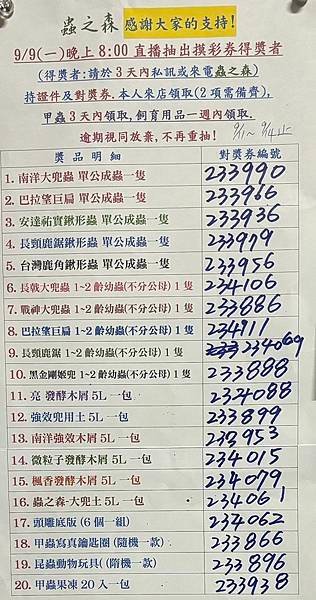 蟲之森 感謝大家的支持!
9/9(一)晚上 8:00 直播抽出摸彩券得獎者
(得獎者:請於 3 天內私訊或來電蟲之森)
持證件及對獎券.本人來店領取(2 項需備齊),
甲蟲 3 天內領取,飼育用品一週內領取.
逾期視同放棄,不再重抽! 9/11~ 9/14止
獎品明細 對獎券編號
1. 南洋大兜蟲 單公成蟲一隻 233990
2. 巴拉望巨扁 單公成蟲一隻 233966
3. 安達祐實鍬形蟲 單公成蟲一隻 233936
4. 長頸鹿鋸鍬形蟲 單公成蟲一隻 233979
5. 台灣鹿角鍬形蟲 單公成蟲一隻 233956
6. 長戟大兜蟲 1~2 齡幼蟲(不分公母) 1 隻 234106
7. 戰神大兜蟲 1~2 齡幼蟲(不分公母) 1 隻 233886
8. 巴拉望巨扁 1~2 齡幼蟲(不分公母) 1 隻 234111
9. 長頸鹿鋸 1~2 齡幼蟲(不分公母) 1 隻 234069
10. 黑金剛姬兜 1~2 齡幼蟲(不分公母) 1 隻 233888
11. 亮 發酵木屑 5L 一包 234088
12. 強效兜用土 5L 一包 233899
13. 南洋強效木屑 5L 一包 233953
14. 微粒子發酵木屑 5L 一包 234015
15. 楓香發酵木屑 5L 一包 234079
16. 蟲之森-大兜土 5L 一包 234061
17. 頭雕底版 (6 個一組) 234062
18. 甲蟲寫真鑰匙圈 (隨機一款) 233866
19. 昆蟲動物玩具( (隋機一款) 233896
20. 甲蟲果凍 20 入一包 233938